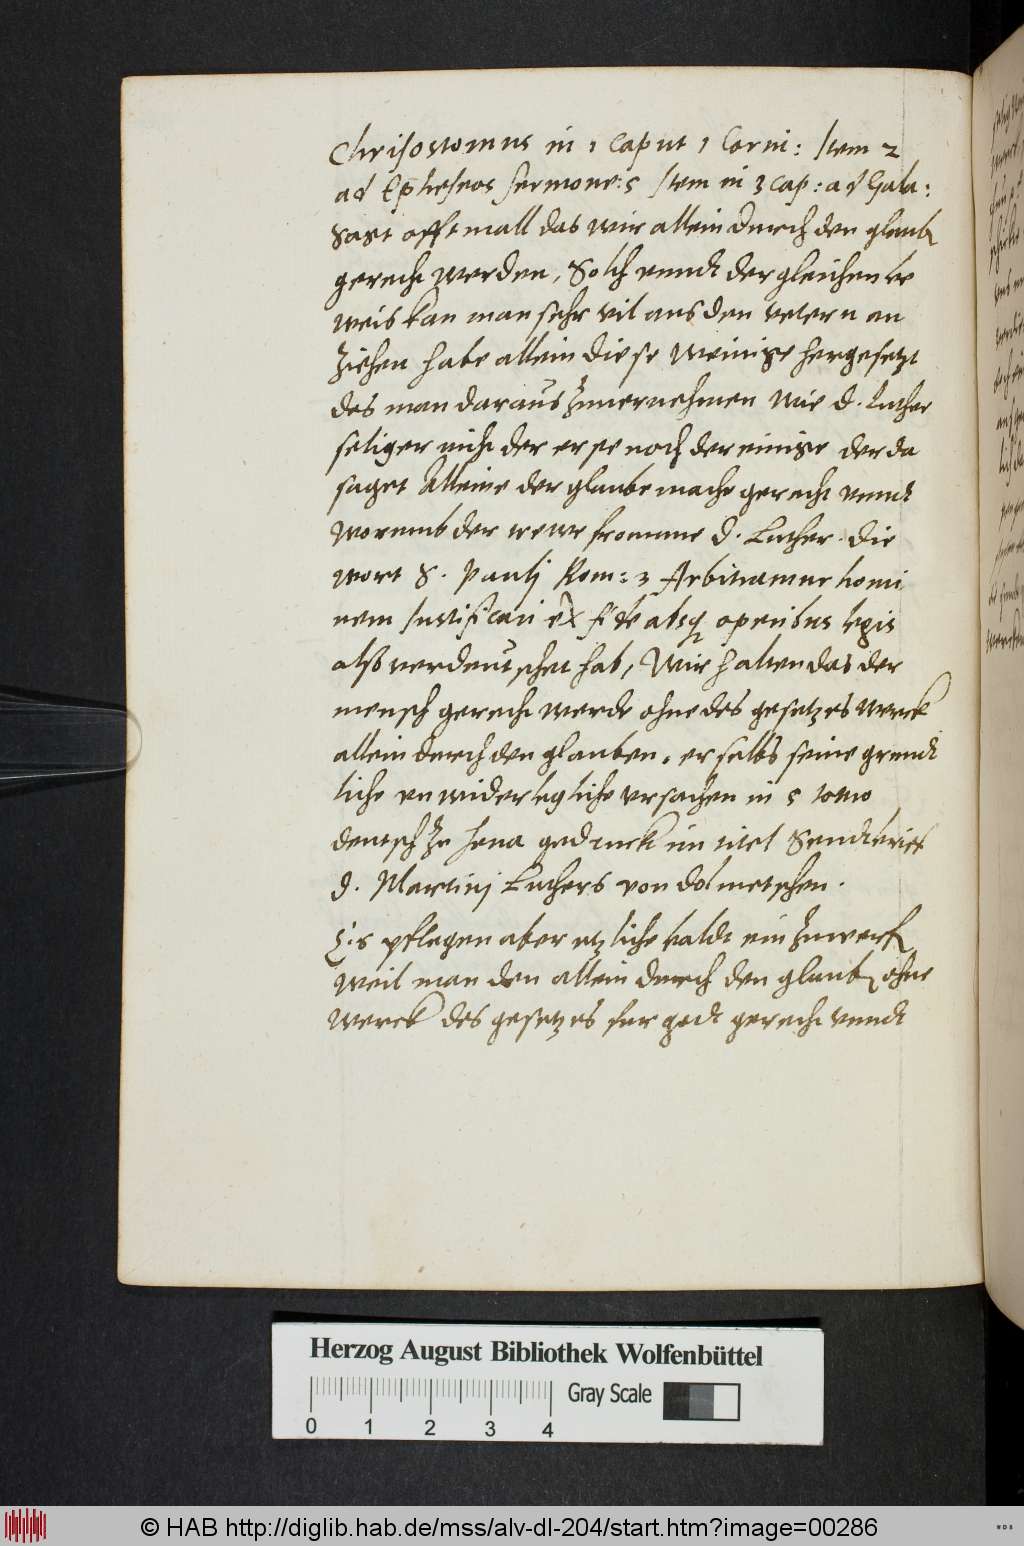 Chrisostomus in 1 Caput 1 Corin: Item 2
ad Epheseos sermone: 5 Item in 3 cap: ad Gala:
Sagt offtmall das wir allein durch den glaub
gerecht werden, Solch vnndt dergleichen be
weis kan man sehr vil aus den vetern an
ziehen habe allein diese weinige hergesetzt
das man daraus zuuernehmen wie D. Luther
seliger nicht der erste noch der einige der da
saget Alleine der glaube mache gerecht vnndt
worumb der trewe fromme D. Luther die
wort S. Paulj Rom: 3 Arbitramur homi
nem Iustificari ex fide absq operibus legis
alß verdeutschet hab, Wir halten das der
mensch gerecht werde ohne des gesetzes werck
allein durch den glauben. er selbs seine gründt
liche vnwiderlegliche vrsachen in 5 tomo
deutsch zu Jena gedruckt im titel Sendtbrieff
D. Martinj Luthers von dolmetschen.
Es pflegen aber etzliche baldt ein zuwerfen
Weil man den allein durch den glaub ohne
werck des gesetzes fur godt gerecht vnndt
Herzog August Bibliothek Wolfenbüttel
0 1 2 3 4 Gray Scale
© HAB http://diglib.hab.de/mss/alv-dl-204/start.htm?image=00286